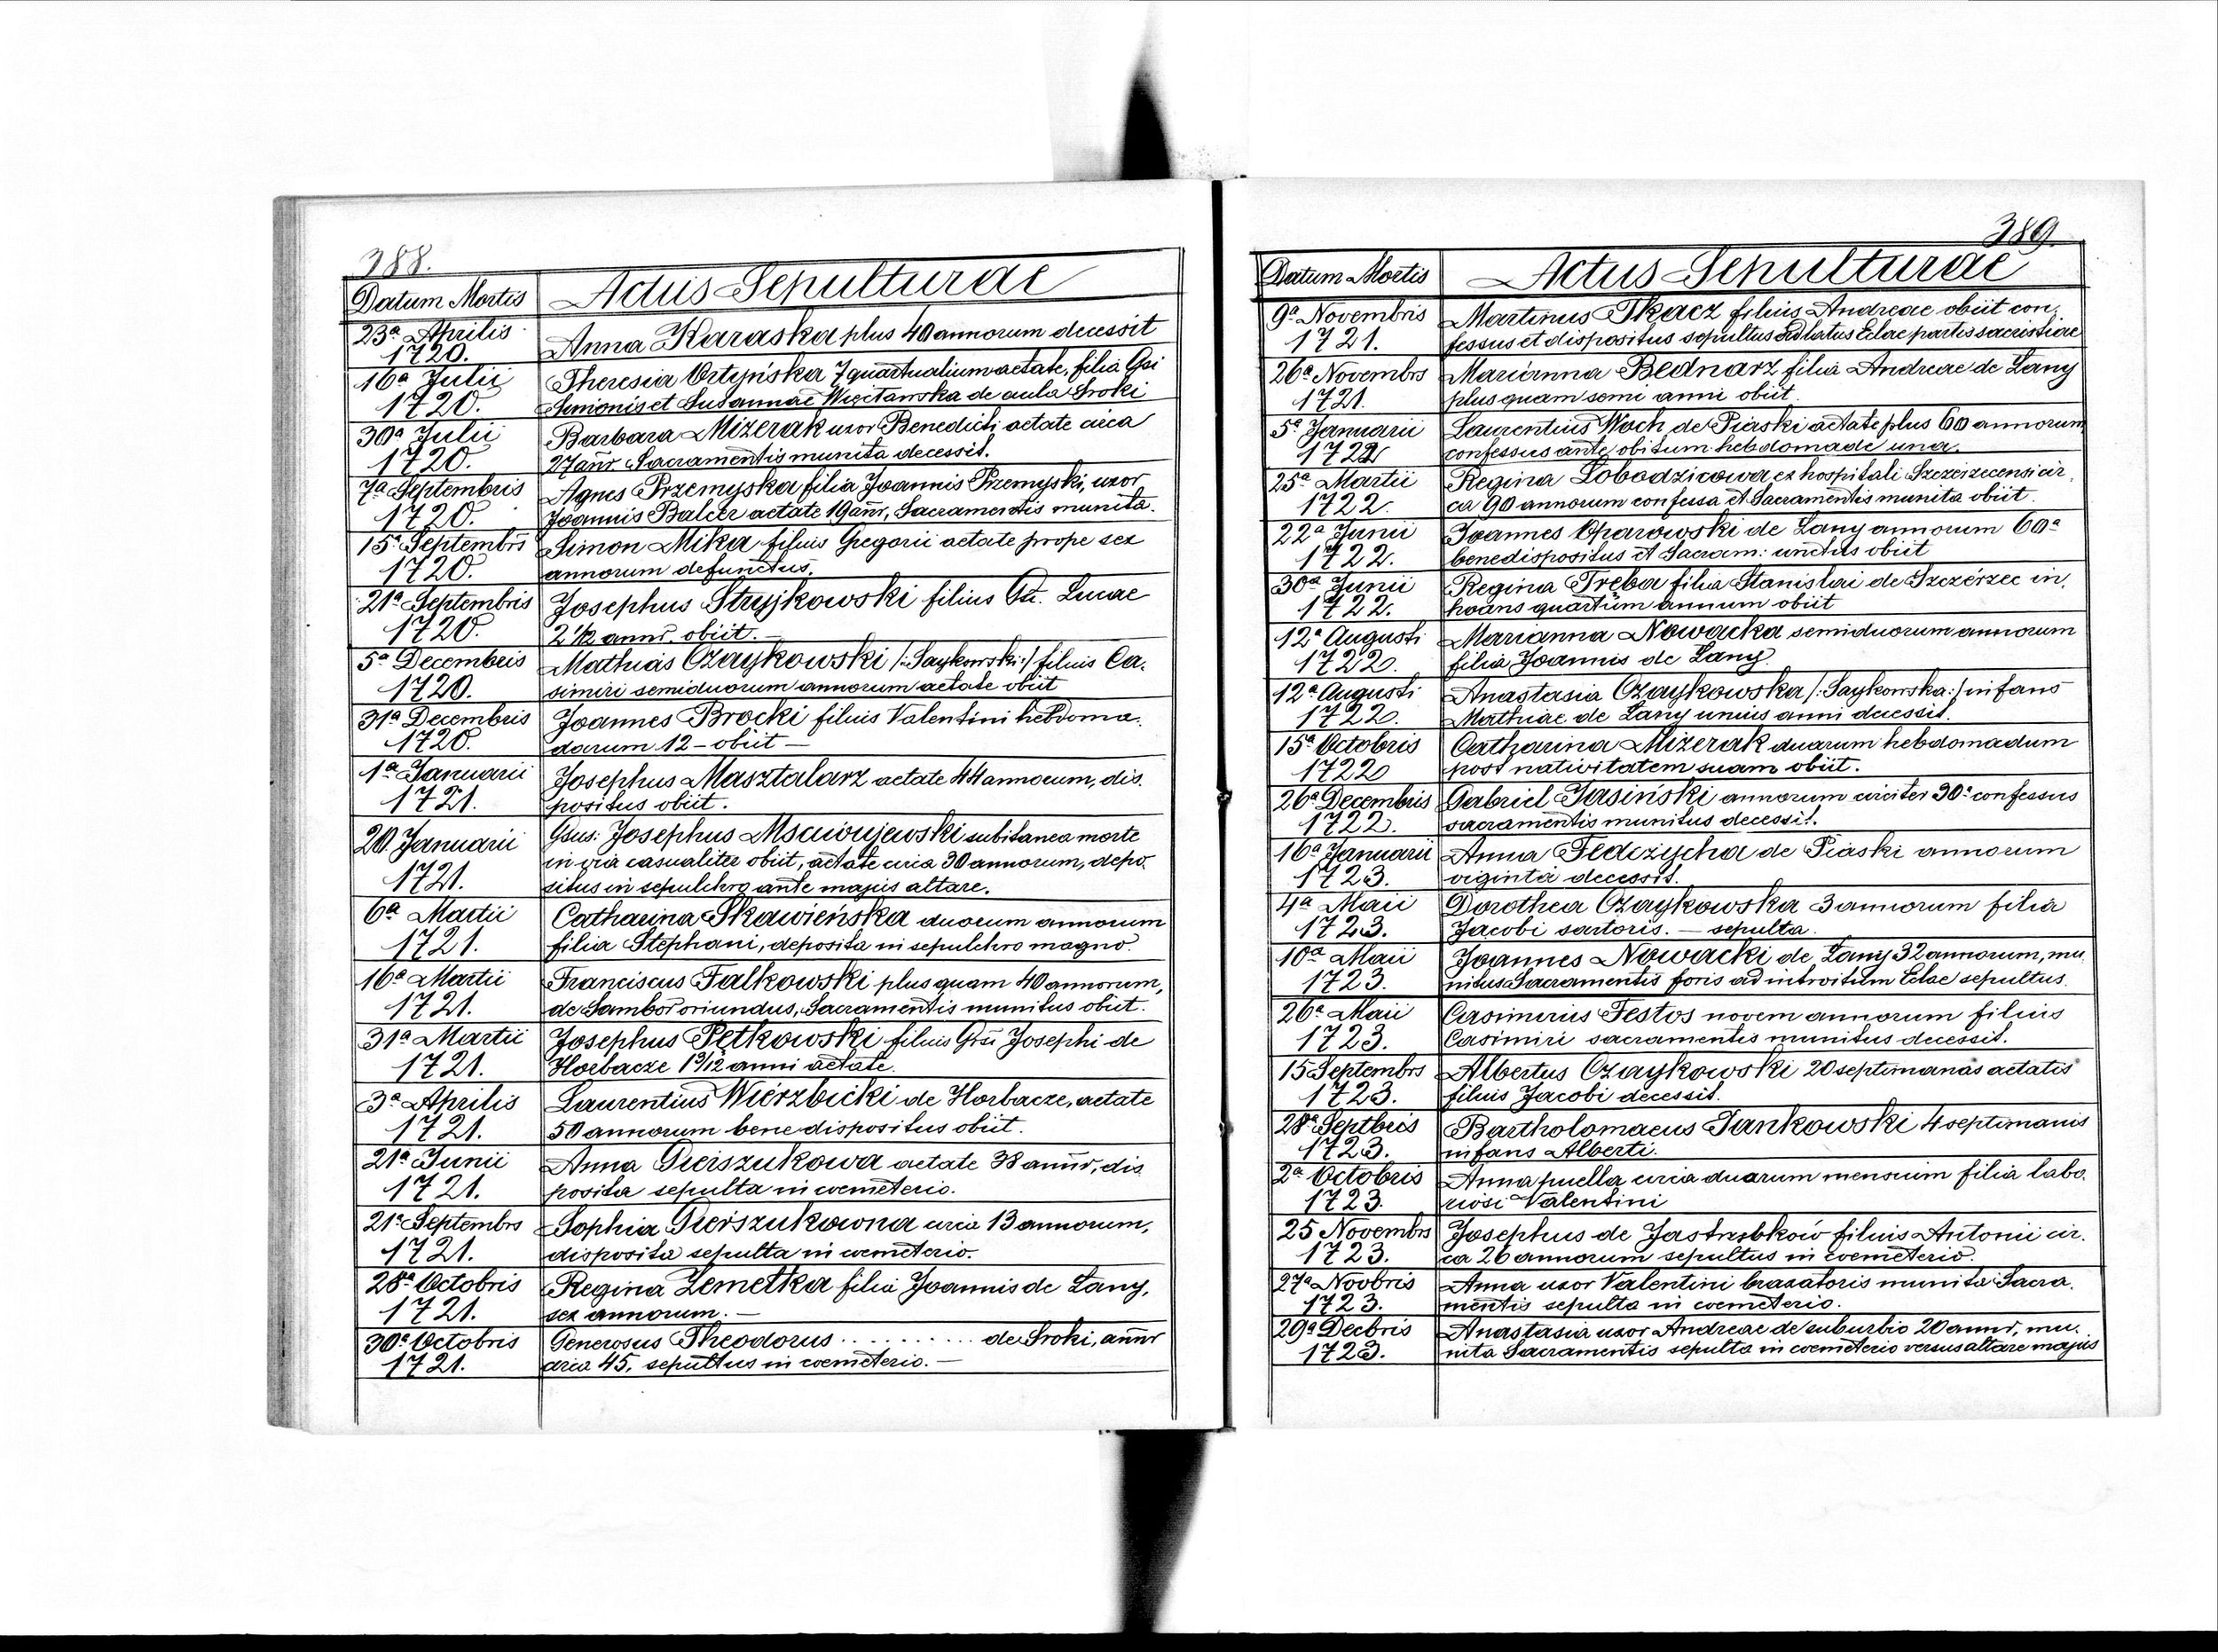 388.
Datum Mortis Actus Sepulturae
23a Aprilis
1720.
Anna Karaska plus 40 annorum decessit
16a Julii
1720.
Theresia Ortyńska 7 quartualium aetate, filia Gsi
Simionis et Susannae Wigitanska de aula Sroki
30a Julii
1720.
Barbara Mizerak uxor Benedicti aetate circa
27 annr Sacramentis munita decessit.
7a Septembris
1720.
Agnes Przemyska filia Joannis Przemyski, uxor
Joannis Balcer aetate 19 annr, Sacramentis munita.
15a Septembrs
1720.
Simon Mika filius Gregorii aetate prope sex
annorum defunctus.
21a Septembris
1720.
Josephus Stryjkowski filius Lucae
2 1/2 annr. obiit.
5a Decembris
1720.
Mathias Czaykowski /:Saykowski:/ filius Ca-
simiri semiduorum annorum aetate obiit
31a Decembris
1720.
Joannes Brocki filius Valentini hebdoma-
darum 12 – obiit –
1a Januarii
1721.
Josephus Masztalarz aetate 44 annorum, dis-
positus obiit.
20. Januarii
1721.
Gsus: Josephus Msciwujewski subitanea morte
in via casualiter obiit, aetate circa 30 annorum, depo-
situs in sepulchro ante majus altare.
6a Martii
1721.
Catharina Skawieńska duorum annorum
filia Stephani, deposita in sepulchro magno.
16a Martii
1721.
Franciscus Falkowski plus quam 40 annorum,
de Sambor oriundus, Sacramentis munitus obiit.
31a Martii
1721.
Josephus Petkowski filius Gsi Josephi de
Horbacze 1 9/12 anni aetate.
3a Aprilis
1721.
Laurentius Wierzbicki de Horbacze, aetate
50 annorum bene dispositus obiit.
21a Junii
1721.
Anna Pierszukowa aetate 38 annr, dis-
posita sepulta in coemeterio.
21a Septembrs
1721.
Sophia Pierszukowna circa 13 annorum,
disposita sepulta in coemeterio.
28a Octobris
1721.
Regina Zemetka filia Joannis de Lany,
sex annorum. –
30a Octobris
1721.
Generosus Theodorus .......... de Sroki, annr
circa 45, sepultus in coemeterio. –
389.
Datum Mortis Actus Sepulturae
9a Novembris
1721.
Martinus Tkacz filius Andreae obiit con-
fessus et dispositus sepultus ad latus Eclae partis sacristiae
26a Novembrs
1721.
Marianna Bednarz filia Andreae de Lany
plus quam semi anni obiit.
5a Januarii
1722
Laurentius Woch de Piaski aetate plus 60 annorum
confessus ante obitum hebdomade una.
25a Martii
1722.
Regina Lobodzicowa ex hospitali Szczerzecensi cir-
ca 90 annorum confessa et Sacramentis munita obiit.
22a Junii
1722.
Joannes Oparowski de Lany annorum 60a
benedispositus et Sacram: unctus obiit
30a Junii
1722.
Regina Tręba filia Stanislai de Szczérzec in-
hoans quartum annum obiit
12a Augusti
1722.
Marianna Nowacka semiduorum annorum
filia Joannis de Lany.
12a Augusti
1722.
Anastasia Czaykowska /:Saykowska:/ infans
Mathiae de Lany unius anni decessit.
15a Octobris
1722
Catharina Mizerak duarum hebdomadum
post nativitatem suam obiit.
26a Decembris
1722.
Gabriel Jasiński annorum circiter 30a confessus
sacramentis munitus decessit.
16a Januarii
1723.
Anna Fedczycha de Piaski annorum
viginta decessit.
4a Maii
1723.
Dorothea Czaykowska 3 annorum filia
Jacobi sartoris. – sepulta.
10a Maii
1723.
Joannes Nowacki de Lany 32 annorum, mu-
nitus Sacramentis foris ad introitum Eclae sepultus.
26a Maii
1723.
Casimirus Festos novem annorum filius
Casimiri sacramentis munitus decessit.
15 Septembrs
1723.
Albertus Czaykowski 20 septimanas aetatis
filius Jacobi decessit.
28a Septbris
1723.
Bartholomaeus Jankowski 4 septimanis
infans Alberti.
2a Octobris
1723.
Anna puella circa duarum mensium filia labo-
riosi Valentini
25 Novembrs
1723.
Josephus de Jastrzębków filius Antonii cir-
ca 26 annorum sepultus in coemeterio.
27a Novbris
1723.
Anna uxor Valentini braxatoris munita Sacra-
mentis sepulta in coemeterio.
29a Decbris
1723.
Anastasia uxor Andreae de suburbio 20 annr, mu-
nita Sacramentis sepulta in coemeterio versus altare majus